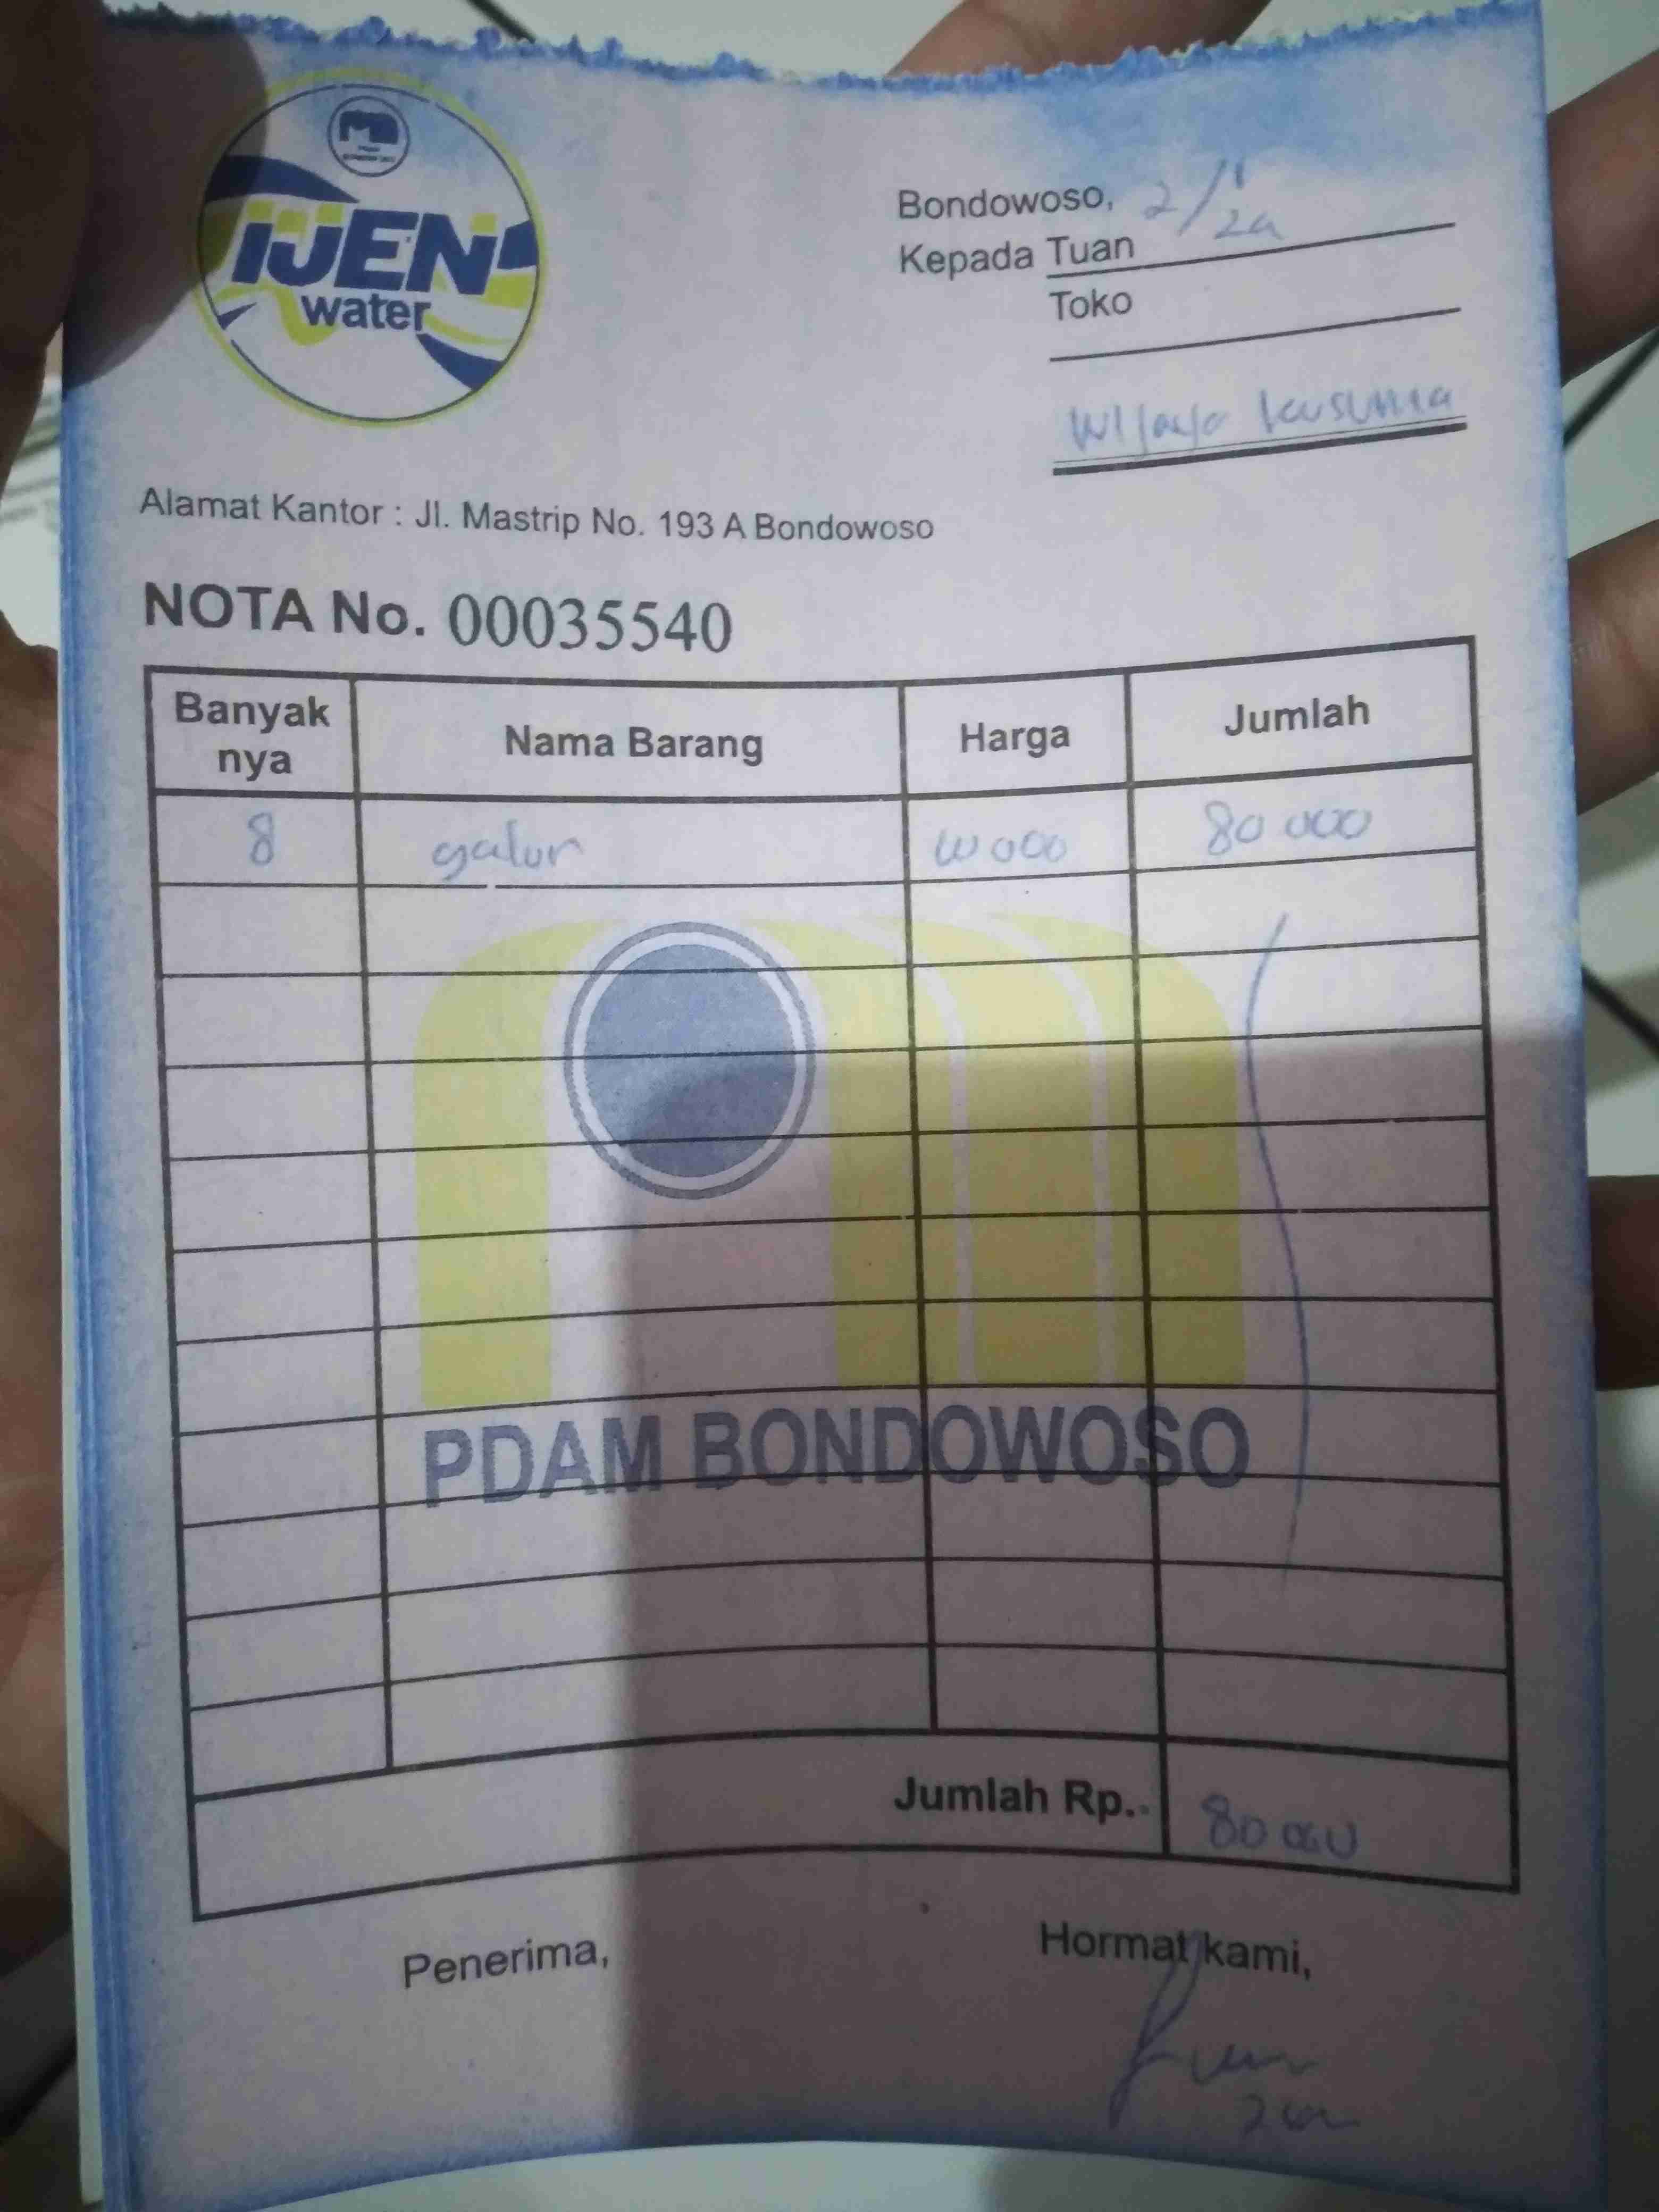 IJEN
water
Bondowoso, 2/1
Kepada Tuan
Toko
Wijaya Kusuma
Alamat Kantor : Jl. Mastrip No. 193 A Bondowoso
NOTA No. 00035540
Banyak nya Nama Barang Harga Jumlah
8 galon 10 000 80 000
PDAM BONDOWOSO
Jumlah Rp. 80 000
Penerima, Hormat kami,